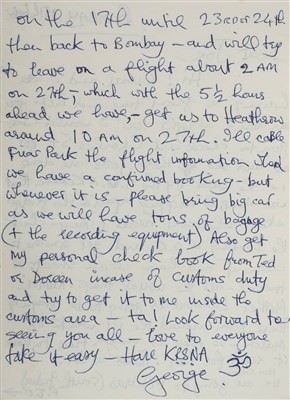 on the 17th until 23rd or 24th
then back to Bombay – and will try
to leave on a flight about 2 AM
on 27th, – which with the 5½ hours
ahead we have, – get us to Heathrow
around 10 AM on 27th. I'll cable
Friar Park the flight information when
we have a confirmed booking – but
whenever it is – please bring big car
as we will have tons of bagage
(+ the recording equipment) Also get
my personal check book from Ted
or Doreen incase of customs duty
and try to get it to me inside the
customs area – ta! Look forward to
seeing you all – love to everyone
take it easy – Hare KRSNA
George ॐ